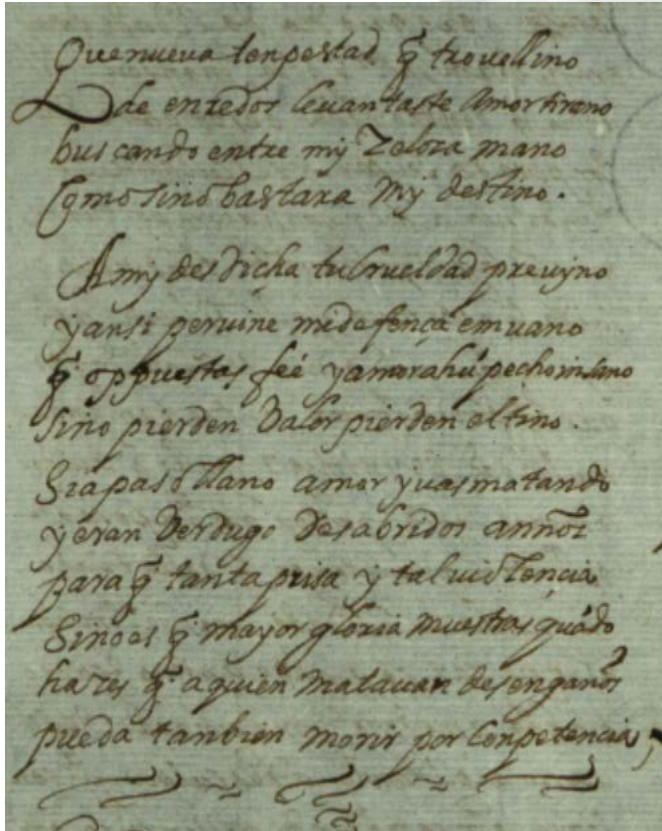 Que nueva tenpestad q̃ trovellino
de enredos levantaste Amor tirano
buscando entre my Zeloza mano
Como sino bastara My destino.
A my desdicha tu crueldad prevyno
y ansi pervine mi defença em vano
q̃ oppuestas feé y amor ahũ pecho insano
sino pierden valor pierden el tino.
Si a paso llano amor y vas matando
y eran verdugo desabridos annos
para q̃ tanta prisa y tal violencia
Sino es q̃ mayor gloria muestras quãdo
hazes q̃ a quien matavan desenganos
pueda tanbien morir por Conpetencia,